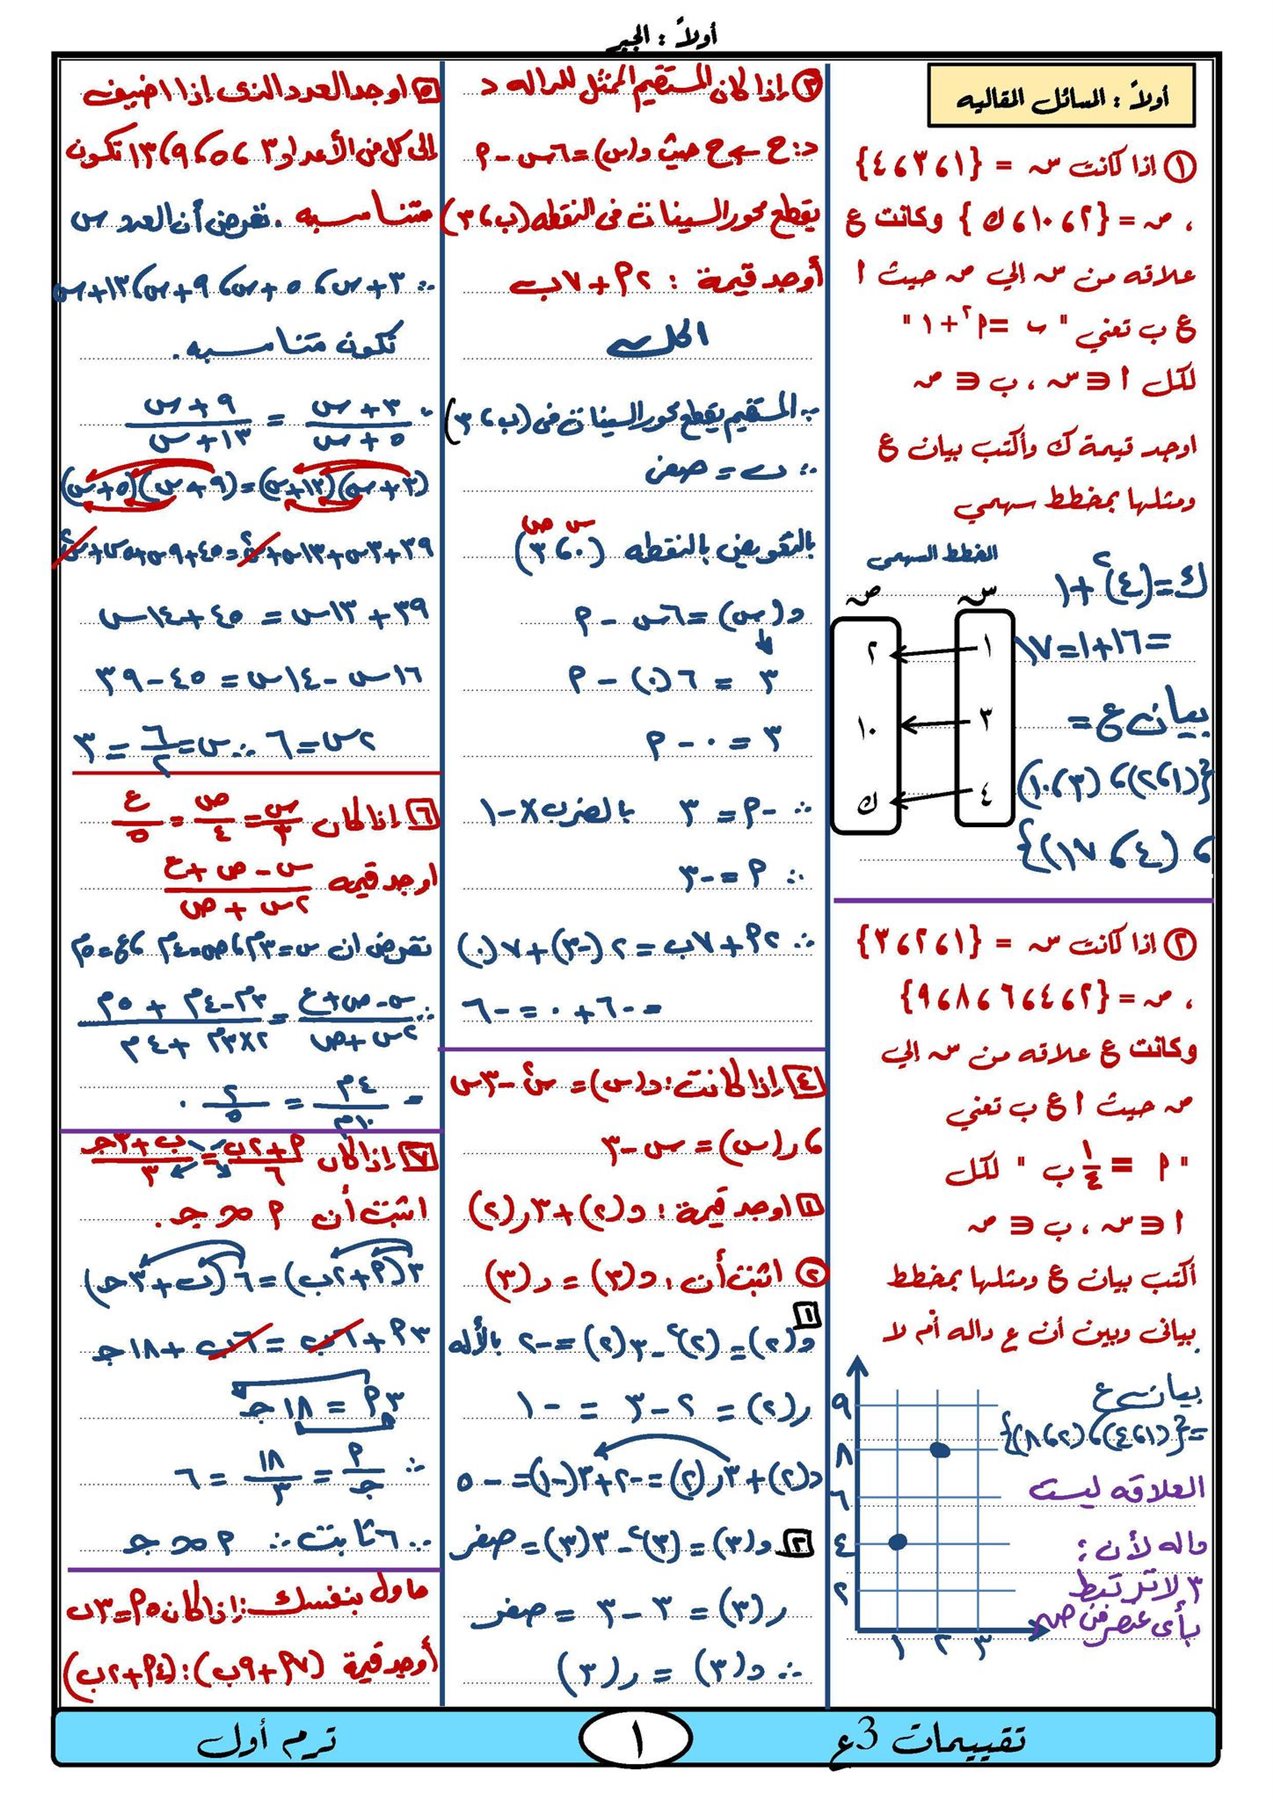 أولاً : الجبر
أولاً : المسائل المقاليه
١ اذا كانت س = {١ ، ٣ ، ٤}
، ص = {٢ ، ١٠ ، ك} وكانت ع
علاقه من س إلي ص حيث أ
ع ب تعني " ب = أ٢ + ١ "
لكل أ ∈ س ، ب ∈ ص
اوجد قيمة ك وأكتب بيان ع
ومثلها بمخطط سهمي
المخطط السهمي
ك = (٤)٢ + ١
= ١٦ + ١ = ١٧
بيان ع =
{(١ ، ٢) ، (٣ ، ١٠)
، (٤ ، ١٧)}
س ص
١ ٢
٣ ١٠
٤ ك
٢ اذا كانت س = {١ ، ٢ ، ٣}
، ص = {٢ ، ٤ ، ٦ ، ٨ ، ٩}
وكانت ع علاقه من س إلي
ص حيث أ ع ب تعني
" أ = ١/٤ ب " لكل
أ ∈ س ، ب ∈ ص
أكتب بيان ع ومثلها بمخطط
بيانى وبين أن ع داله أم لا
بيان ع
= {(١ ، ٤) ، (٢ ، ٨)}
العلاقه ليست
داله لأن :
٣ لا ترتبط
بأى عنصر فى ص
٩
٨
٦
٤
٢
١ ٢ ٣
٣ إذا كان المستقيم الممثل للداله د
د : ح ← ح حيث د(س) = ٦س - أ
يقطع محور السينات فى النقطه (ب ، ٣)
أوجد قيمة : ٢أ + ٧ب
الحل
∵ المستقيم يقطع محور السينات فى (ب ، ٣)
∴ ب = صفر
س ص
بالتعويض بالنقطه (٠ ، ٣)
د(س) = ٦س - أ
٣ = ٦(٠) - أ
٣ = ٠ - أ
∴ -أ = ٣ بالضرب × -١
∴ أ = -٣
∴ ٢أ + ٧ب = ٢(-٣) + ٧(٠)
= -٦ + ٠ = -٦
٤ إذا كانت : د(س) = س٢ - ٣س
، ر(س) = س - ٣
١ اوجد قيمة : د(٢) + ٣ر(٢)
٢ اثبت أن : د(٣) = ر(٣)
١
د(٢) = (٢)٢ - ٣(٢) = -٢ بالأله
ر(٢) = ٢ - ٣ = -١
د(٢) + ٣ر(٢) = -٢ + ٣(-١) = -٥
٢ د(٣) = (٣)٢ - ٣(٣) = صفر
ر(٣) = ٣ - ٣ = صفر
∴ د(٣) = ر(٣)
٥ اوجد العدد الذى إذا اضيف
إلى كل من الأعداد ٣ ، ٥ ، ٩ ، ١٣ تكون
متناسبه . نفرض أن العدد س
∴ ٣ + س ، ٥ + س ، ٩ + س ، ١٣ + س
تكون متناسبه .
∴ ٣ + س / ٥ + س = ٩ + س / ١٣ + س
(٣ + س)(١٣ + س) = (٩ + س)(٥ + س)
٣٩ + ٣س + ١٣س + س٢ = ٤٥ + ٩س + ٥س + س٢
٣٩ + ١٣س = ٤٥ + ١٤س
١٦س - ١٤س = ٤٥ - ٣٩
٢س = ٦ ∴ س = ٦/٢ = ٣
٦ إذا كان س/٣ = ص/٤ = ع/٥
اوجد قيمه س - ص + ع / ٢س + ص
نفرض ان س = ٣م ، ص = ٤م ، ع = ٥م
∴ س - ص + ع / ٢س + ص = ٣م - ٤م + ٥م / ٢×٣م + ٤م
= ٤م / ١٠م = ٢/٥ .
٧ إذا كان أ + ٢ب / ٦ = ب + ٣جـ / ٣
اثبت أن أ ∝ جـ .
٣(أ + ٢ب) = ٦(ب + ٣جـ)
٣أ + ٦ب = ٦ب + ١٨جـ
٣أ = ١٨جـ
∴ أ/جـ = ١٨/٣ = ٦
∵ ٦ ثابت ∴ أ ∝ جـ
حاول بنفسك : إذا كان ٥أ = ٣ب
أوجد قيمة (٧أ + ٩ب) : (٤أ + ٢ب)
تقييمات 3ع
١
ترم أول